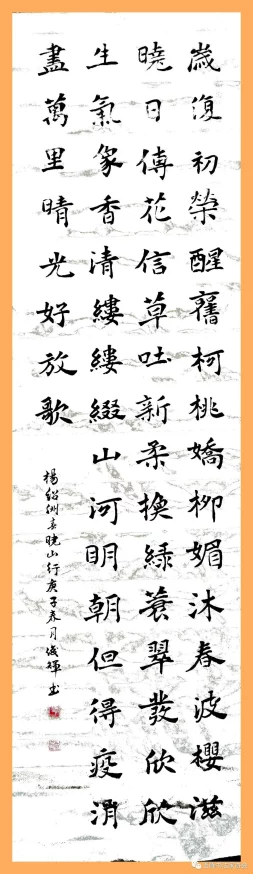 歲復初榮醒舊柯桃嬌柳媚沐春波櫻滋
曉日傳花信草吐新柔換綠蓑翠發欣欣
生氣象香清縷縷綴山河明朝但得疫消
盡萬里晴光好放歌
楊紹洲春曉山行庚子春月書